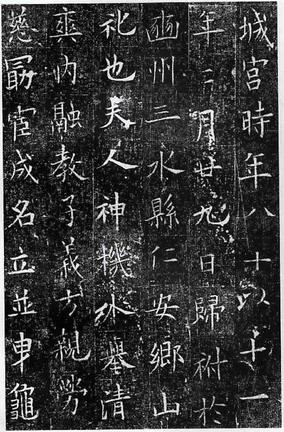 城宮時年八十以十一
年三月廿九日歸祔於
豳州三水縣仁安鄉山
礼也夫人神機外舉清
爽內融教子義方親勞
慈勗宦成名立並申龜